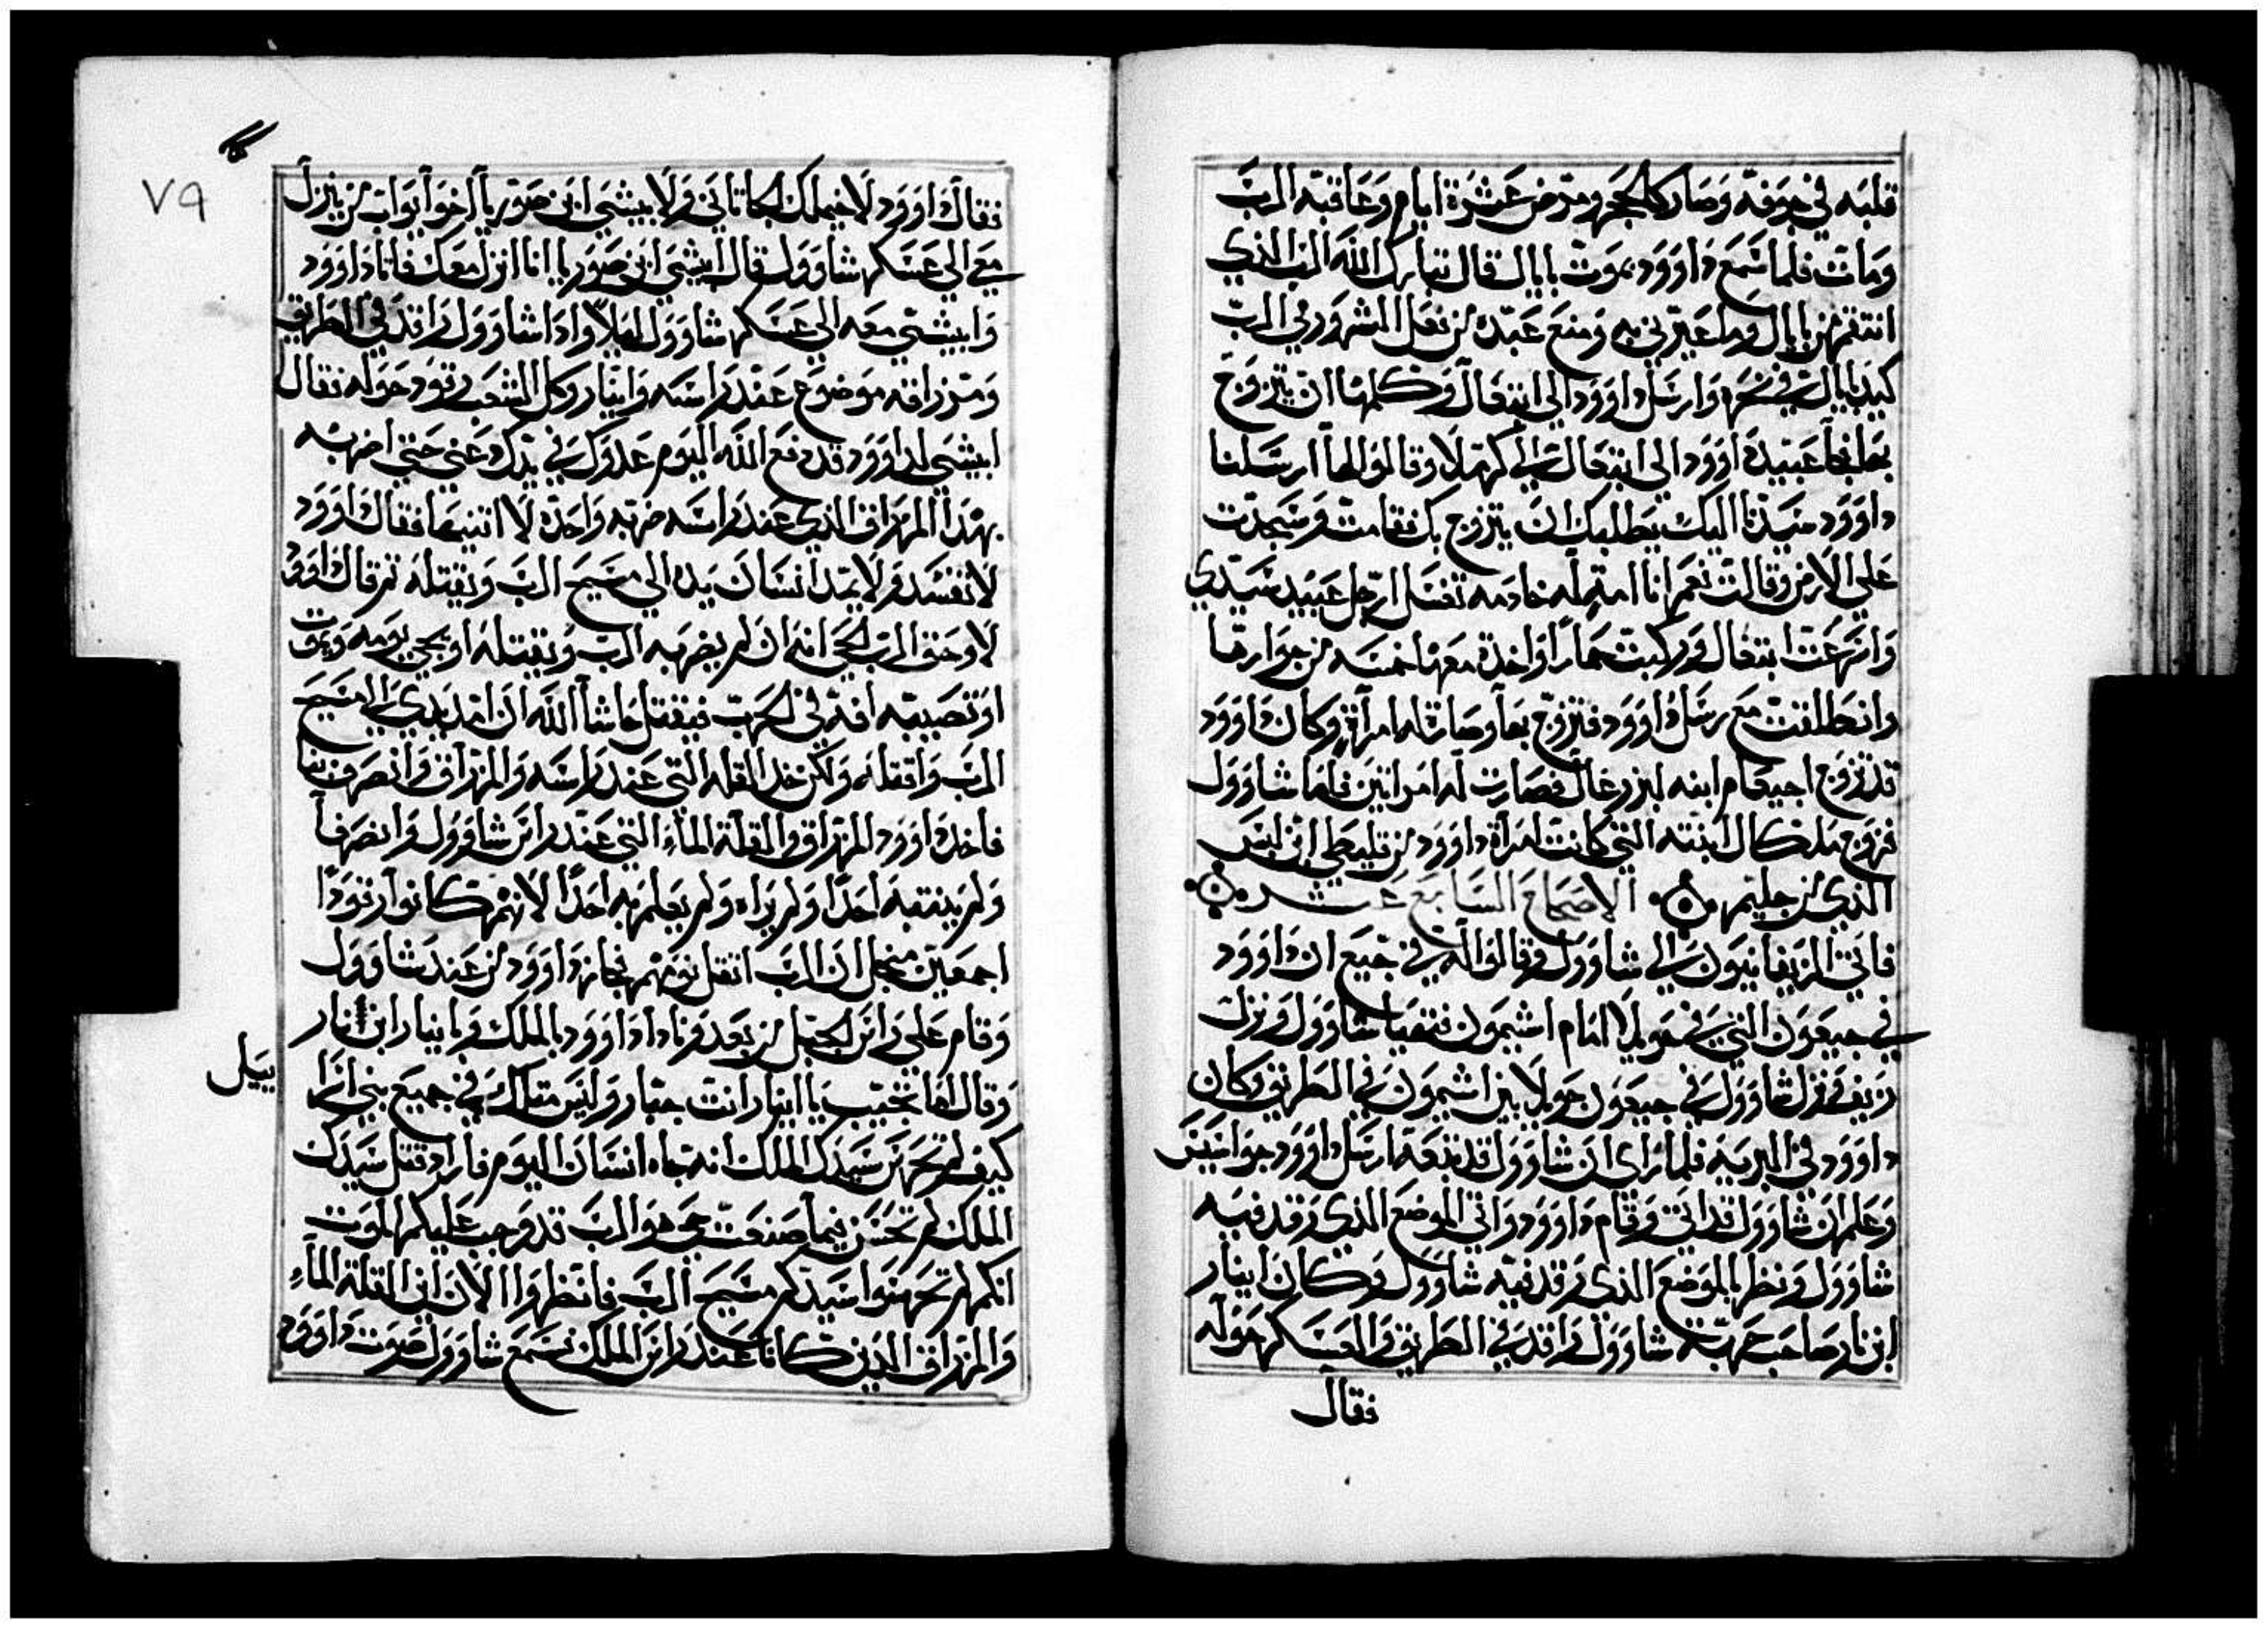 قلبه في جوفه وصار كالحجر ومرض عشرة ايام وعاقبه الرب
ومات فلما سمع داوود بموت بايال قال تبارك الله الرب الذي
انتقم من بايال وما عيرني به ومنع عبده من فعل الشرور الرب
كيد بايال في نحره وارسل داوود الي ابتغال وكلمها ان يتزوج
بها فجا عبيد داوود الي ابتغال الي كرملا وقالوا لها ارسلنا
داوود سيدنا اليك يطلبك ان يتزوج بك فقامت وسجدت
علي الارض وقالت نعم انا امة له خادمه تغسل ارجل عبيد سيدي
واسرعت ابتغال وركبت حمارا واخدة معها خمسه من جوارها
وانطلقت مع رسل داوود فتزوج بها وصارة له امرأة وكان داوود
قد تزوج اجيعام ابنه ايزرعال فصارت له امراتين فاما شاوول
فزوج ملكال ابنته التي كانت امرأة داوود من فليطي ابن ليس
الذي من جليم الاصحاح السابع عشر
فاتي الزيفانيون الي شاوول وقالوا له في جبع ان داوود
في جبعون التي في حويلا امام اشيمون فتهيا شاوول ونزل
زيف فنزل شاوول في جبعون حويلا بين اشيمون في الطريق وكان
داوود في البريه فلما راي ان شاوول قد تبعه ارسل داوود جواسيس
وعلم ان شاوول قد اتي وقام داوود واتي الموضع الذي رقد فيه
شاوول ونظر بالموضع الذي رقد فيه شاوول وكان ابنار
ابن نار صاحب حربة شاوول راقد في الطريق والعسكر حوله
فقال
٧٩
فقال داوود لاخيملك الحاتاني ولابيشي ابن صوريا اخو ايواب من ينزل
معي الي عسكر شاوول قال ابيشي ابن صوريا انا انزل معك فاتا داوود
وابيشي معه الي عسكر شاوول ليلا واذا شاوول راقد في الطريق
ومزراقه موضوع عند راسه وابنار وكل الشعب رقود حوله فقال
ابيشي لداوود قد دفع الله اليوم عدوك في يدك دعني حتي اضربه
بهذا المزراق الذي عند راسه ضربه واحدة لا اتنيها فقال داوود
لا تفسد ولا يمد انسان يده الي مسيح الرب ويقتله ثم قال داوود
لا وحق الرب الحي انه ان لم يضربه الرب ويقتله او يجي يومه ويموت
او تصيبه افة في الحرب فيقتل حاشا الله ان امد يدي الي مسيح
الرب واقتله ولكن خد القله التي عند راسه والمزراق وانصرف بنا
فاخد داوود المزراق والقلة الماء التي عند راس شاوول وانصرفا
ولم ينتبه احدا ولم يراه ولم يعلم به احدا لانهم كانوا رقودا
اجمعين من اجل ان الرب اثقل نومهم فجاز داوود من عند شاوول
وقام علي راس الجبل من بعد ونادا داوود بالملك وبابنيار ابن نار
وقال اما تجيب يا ابنيار انت جبار وليس مثالك في جميع بني اسرا
ييل
كيف لم تحرس سيدك الملك انه جاه انسان اليوم فاراد قتل سيدك
الملك لم تحسن فيما صنعت حي هو الرب قد وجب عليكم الموت
انكم لم تحرسوا سيدكم مسيح الرب فانظروا الان اين القلة الماء
والمزراق الذين كانا عند راس الملك فسمع شاوول صوت داوود